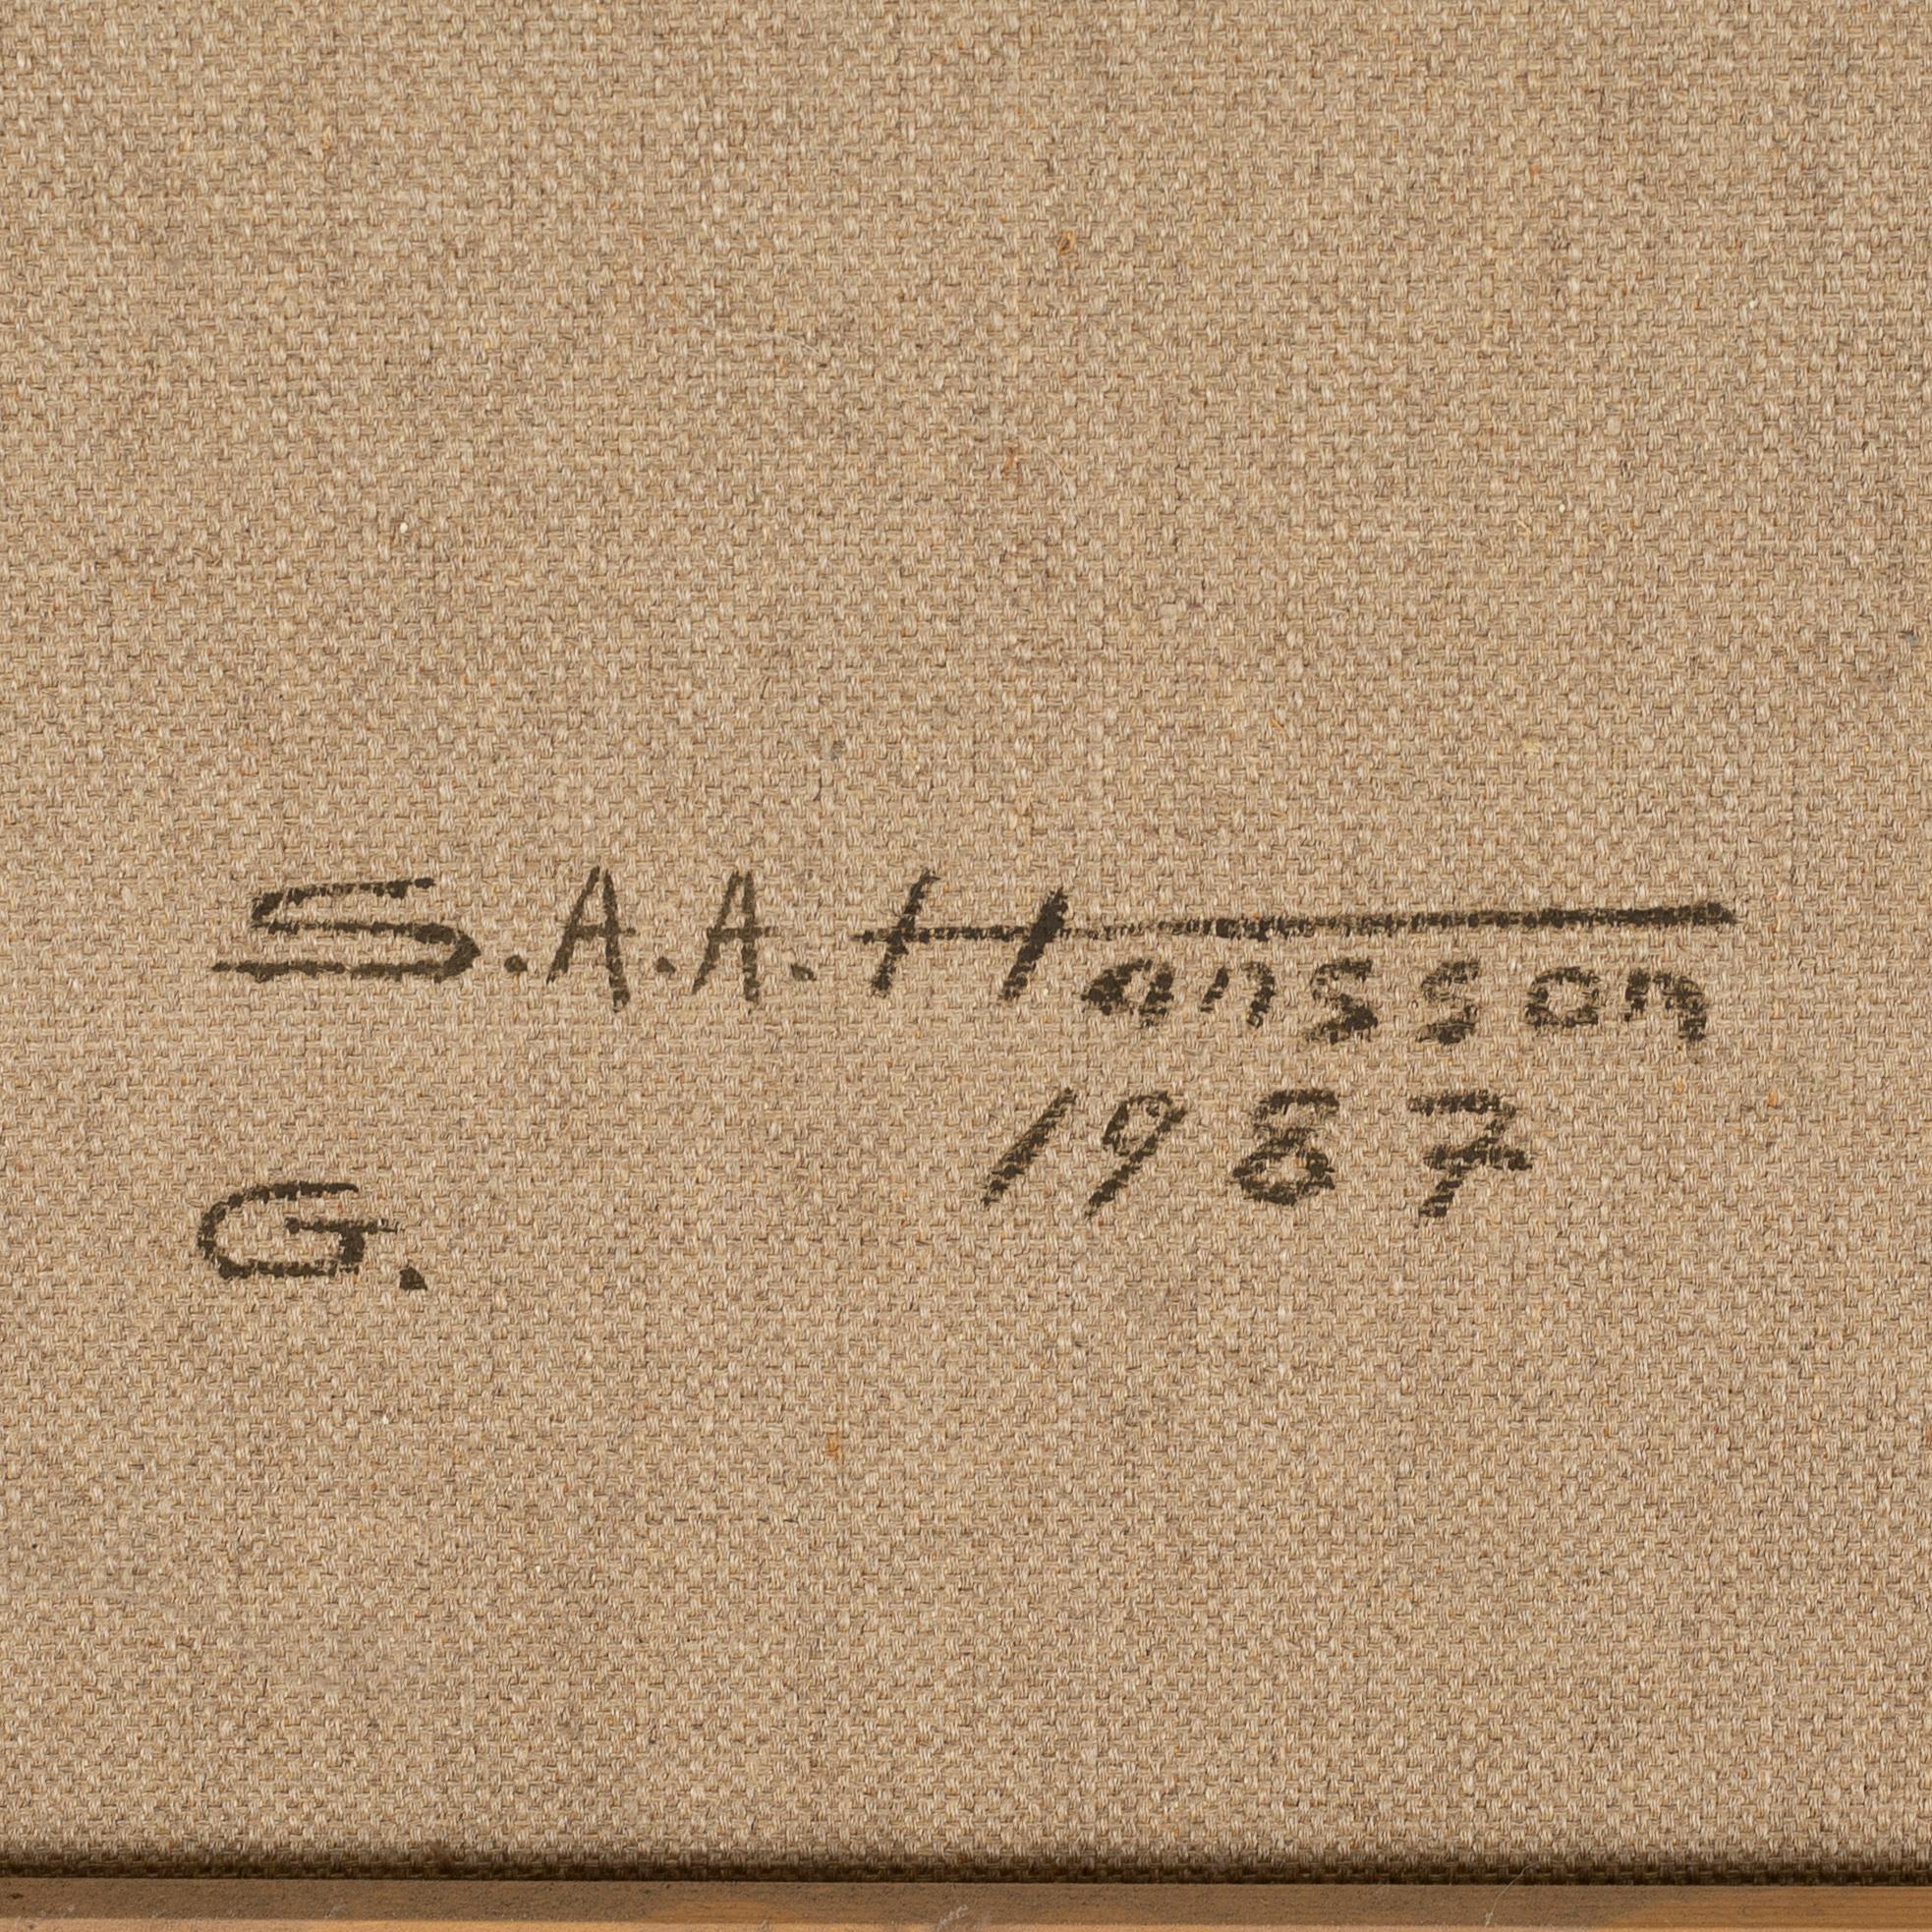 S.A.A. Hansson
1987
G.